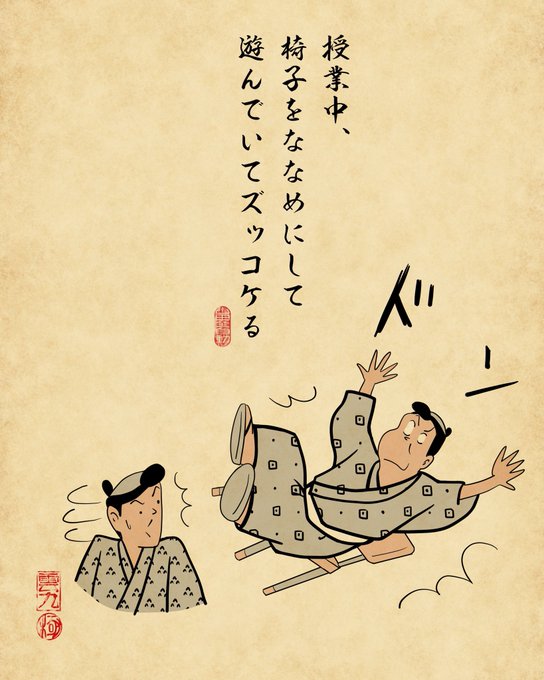 授業中、
椅子をななめにして
遊んでいてズッコケる
ズーン